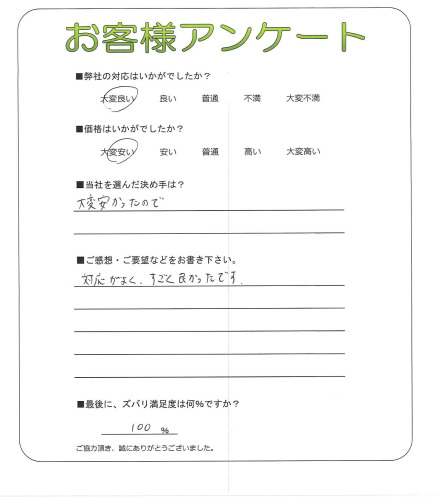 お客様アンケート
■弊社の対応はいかがでしたか？
大変良い 良い 普通 不満 大変不満
■価格はいかがでしたか？
大変安い 安い 普通 高い 大変高い
■当社を選んだ決め手は？
大変安かったので
■ご感想・ご要望などをお書き下さい。
対応がよく、すごく良かったです。
■最後に、ズバリ満足度は何％ですか？
100 %
ご協力頂き、誠にありがとうございました。